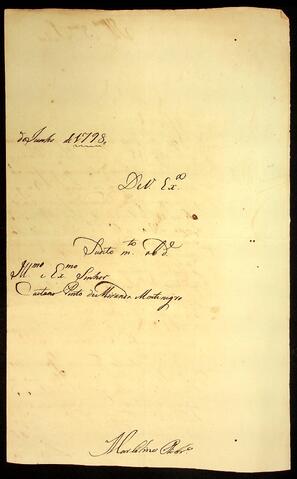 de Junho de 1798,
De V. Ex.ª
Subdito m.to
Ill.mo e Ex.mo Senhor
Caetano Pinto de Miranda Montenegro